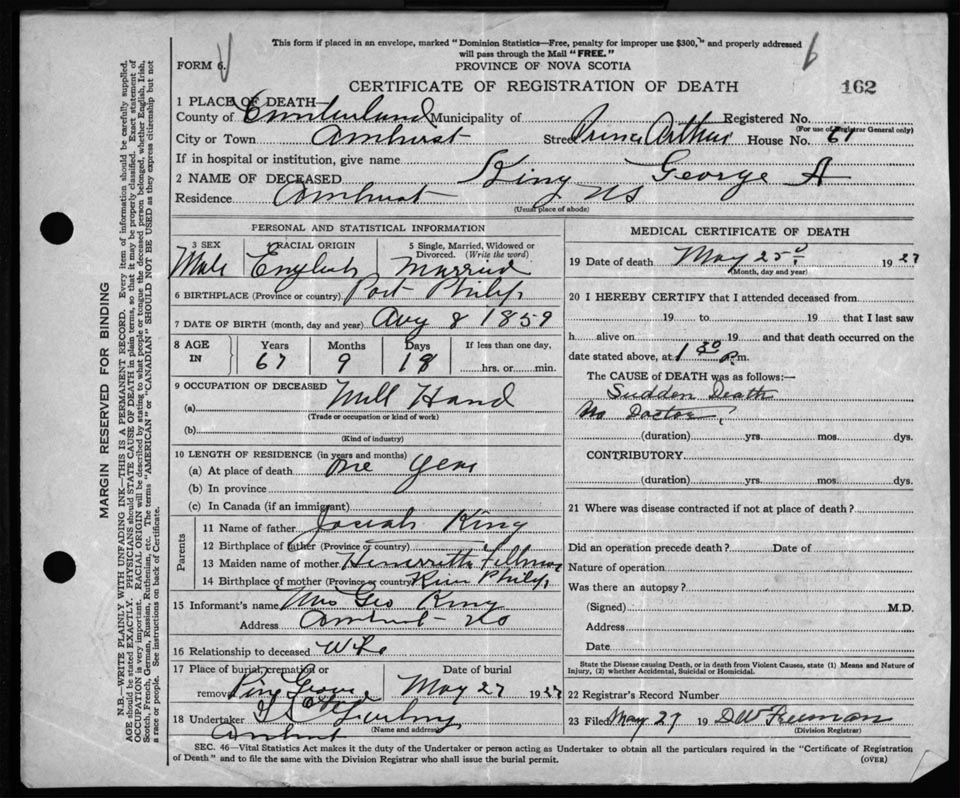 This form if placed in an envelope, marked "Dominion Statistics—Free, penalty for improper use $300," and properly addressed
will pass through the Mail "FREE."
FORM 6.
PROVINCE OF NOVA SCOTIA
6
CERTIFICATE OF REGISTRATION OF DEATH
162
1 PLACE OF DEATH—
County of Cumberland Municipality of Registered No.
(For use of Registrar General only)
City or Town Amherst Street Prince Arthur House No. 61
If in hospital or institution, give name
2 NAME OF DECEASED King George A
Residence Amherst NS
(Usual place of abode)
PERSONAL AND STATISTICAL INFORMATION
3 SEX 4 RACIAL ORIGIN 5 Single, Married, Widowed or Divorced. (Write the word)
Male English Married
6 BIRTHPLACE (Province or country) Port Philip
7 DATE OF BIRTH (month, day and year) Aug 8 1859
8 AGE IN Years Months Days If less than one day,
67 9 18 hrs. or min.
9 OCCUPATION OF DECEASED
(a) Mill Hand
(Trade or occupation or kind of work)
(b)
(Kind of industry)
10 LENGTH OF RESIDENCE (in years and months)
(a) At place of death one year
(b) In province
(c) In Canada (if an immigrant)
Parents
11 Name of father Josiah King
12 Birthplace of father (Province or country)
13 Maiden name of mother Henerretta
14 Birthplace of mother (Province or country) Philip
15 Informant's name Mrs Geo King
Address Amherst NS
16 Relationship to deceased Wife
17 Place of burial, cremation or removal Pine Grove
Date of burial
May 27 1927
18 Undertaker
(Name and address)
Amherst
MEDICAL CERTIFICATE OF DEATH
19 Date of death May 25 1927
(Month, day and year)
20 I HEREBY CERTIFY that I attended deceased from
19 to 19 that I last saw
h alive on 19 and that death occurred on the
date stated above, at 1 30 P.m.
The CAUSE OF DEATH was as follows:—
Sudden Death
No Doctor
(duration) yrs. mos. dys.
CONTRIBUTORY
(duration) yrs. mos. dys.
21 Where was disease contracted if not at place of death?
Did an operation precede death? Date of
Nature of operation
Was there an autopsy?
(Signed) M.D.
Address
Date
State the Disease causing Death, or in death from Violent Causes, state (1) Means and Nature of
Injury, (2) whether Accidental, Suicidal or Homicidal.
22 Registrar's Record Number
23 Filed May 27 19 D W Freeman
(Division Registrar)
SEC. 46—Vital Statistics Act makes it the duty of the Undertaker or person acting as Undertaker to obtain all the particulars required in the "Certificate of Registration
of Death" and to file the same with the Division Registrar who shall issue the burial permit.
(OVER)
MARGIN RESERVED FOR BINDING
N.B.—WRITE PLAINLY WITH UNFADING INK—THIS IS A PERMANENT RECORD. Every item of information should be carefully supplied.
AGE should be stated EXACTLY. PHYSICIANS should STATE CAUSE OF DEATH in plain terms, so that it may be properly classified. Exact statement of
OCCUPATION is very important. RACIAL ORIGIN will be described by stating to what people or tongue the deceased person belonged, whether English, Irish,
Scotch, French, German, Russian, Ruthenian, etc. The terms "AMERICAN" or "CANADIAN" SHOULD NOT BE USED as they express citizenship but not
a race or people. See instructions on back of Certificate.